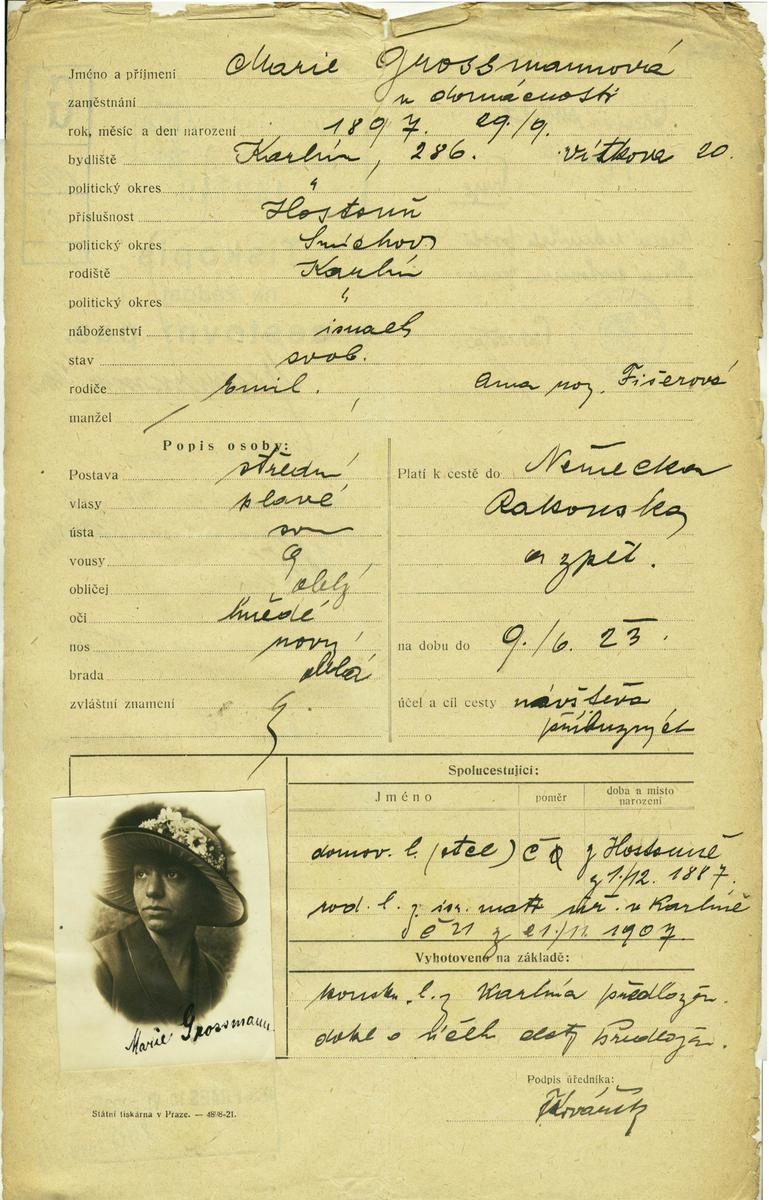 Jméno a příjmení Marie Grossmannová
zaměstnání v domácnosti
rok, měsíc a den narození 1897. 29./9.
bydliště Karlín, 286. Vítkova 20.
politický okres "
příslušnost Hostouň
politický okres Smíchov
rodiště Karlín
politický okres "
náboženství israel
stav svob.
rodiče Emil. Anna roz. Fišerová
manžel /
Popis osoby:
Postava střední
vlasy plavé
ústa
vousy
obličej oblý
oči hnědé
nos rovný
brada oblá
zvláštní znamení
Platí k cestě do Německa
Rakouska
a zpět.
na dobu do 9./6. 23.
účel a cíl cesty návštěva
příbuzných
Spolucestující:
Jméno poměr doba a místo
narození
domov. l. (otce) č z Hostouně
z 1./12. 1887.
rod. l. z isr. matr. v Karlíně
č 21 z 21./11. 1907.
Vyhotoveno na základě:
konsk. l. z Karlína předložen.
dokl o předložen.
Podpis úředníka:
Marie Grossmann
Státní tiskárna v Praze. — 4898-21.